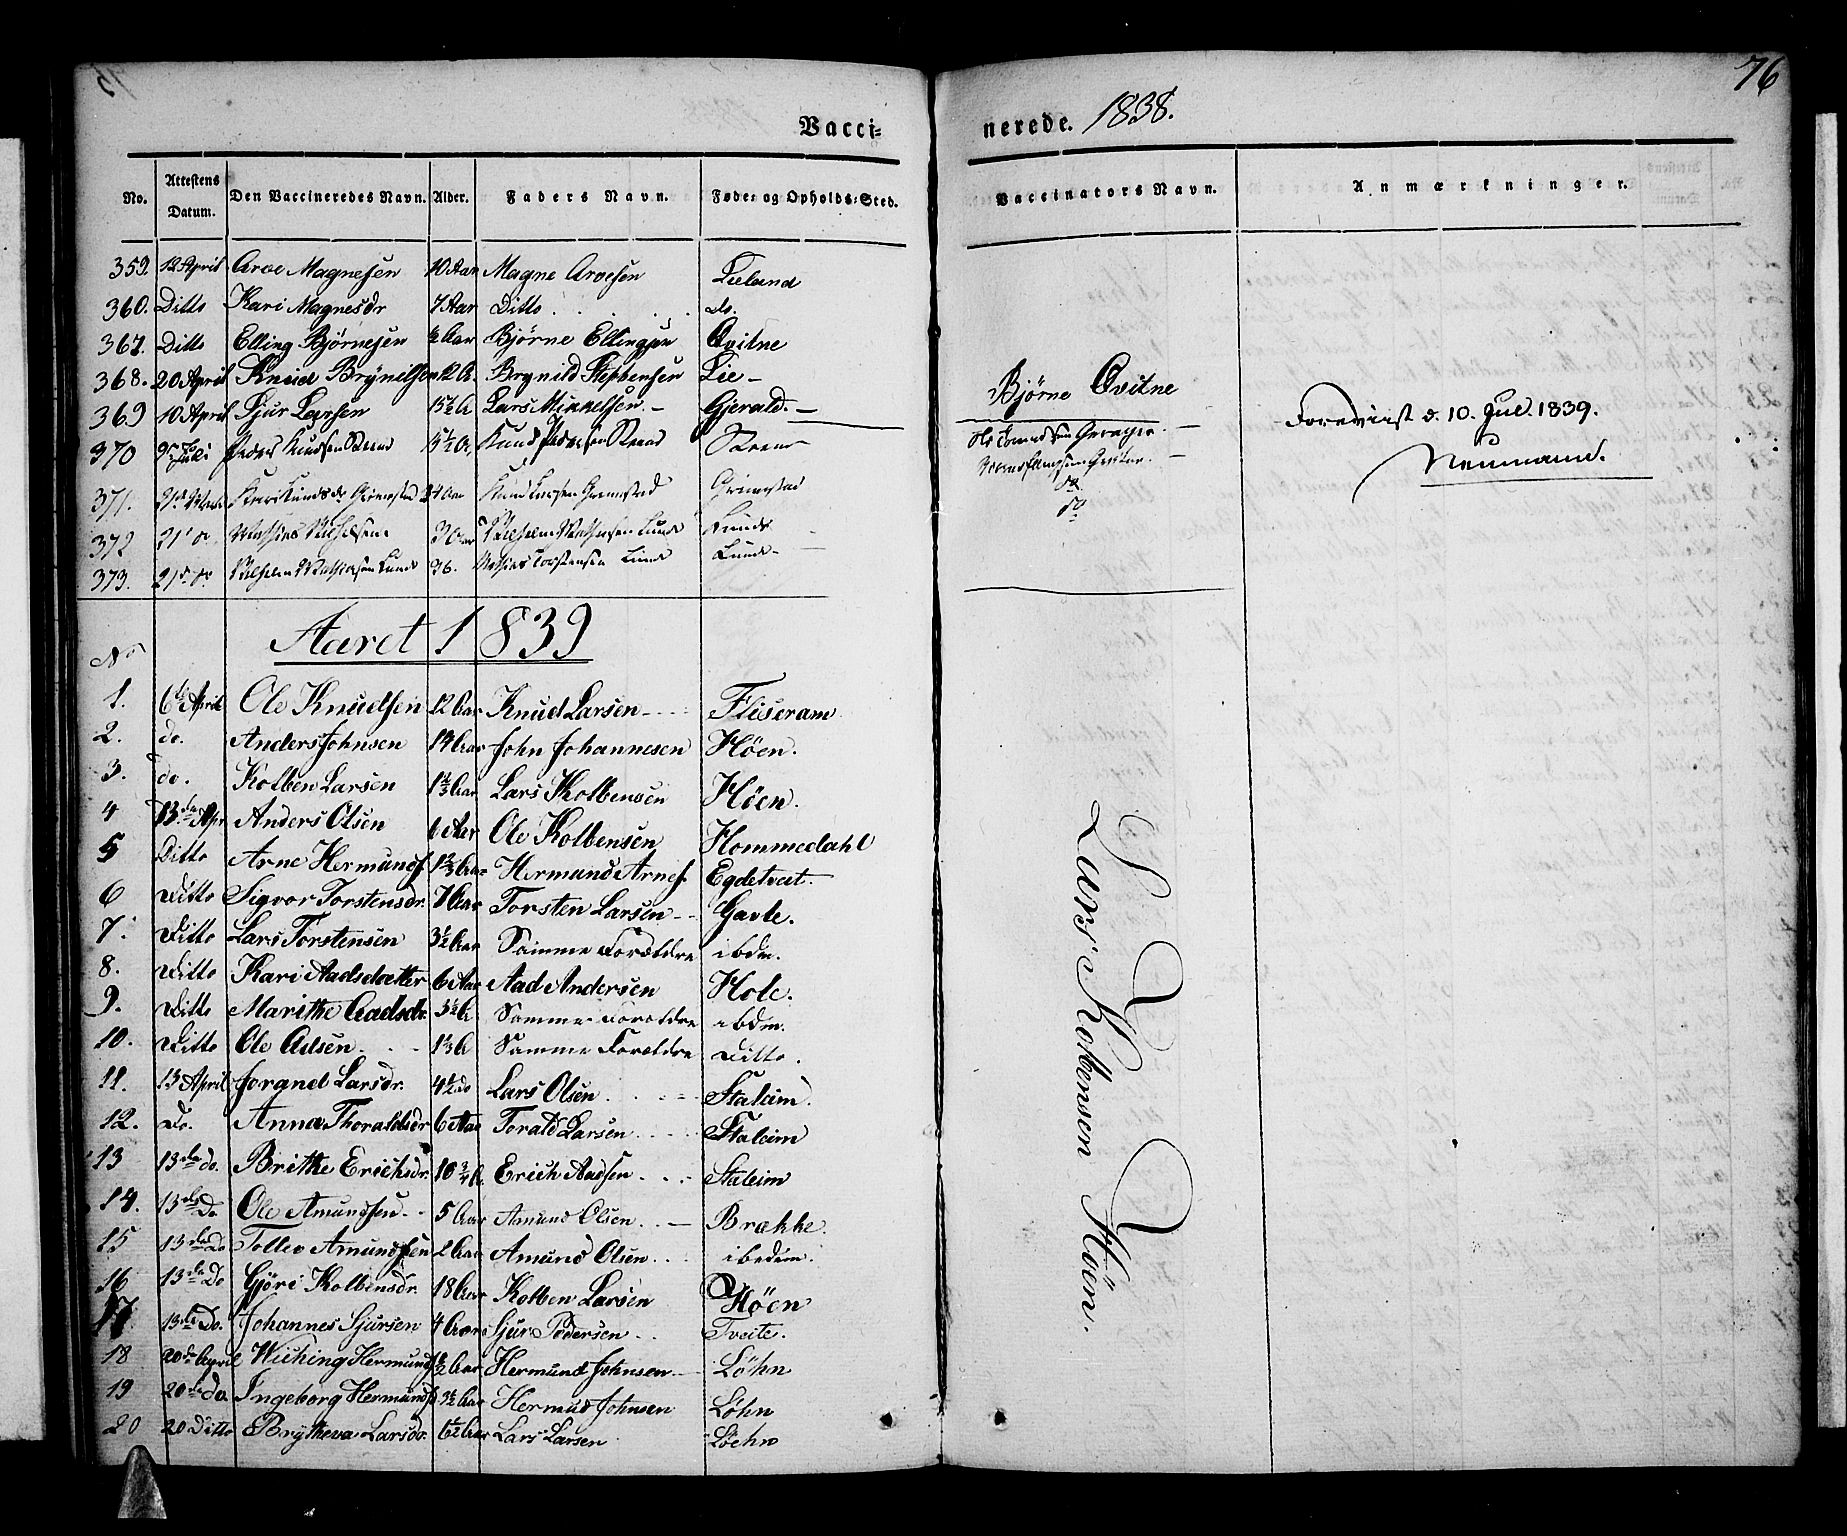 76
Vacci-
nerede. 1838.
No. Attestens Datum. Den Vaccineredes Navn. Alder. Faders Navn. Føde- og Opholds-Sted.
Vaccinators Navn. Anmærkninger.
359. 12 April Arve Magnesen 10 Aar Magne Arvesen Lieland
360. Ditto Kari Magnesdr 7 Aar Ditto do.
367. Ditto Elling Bjørnesen ½ Aar Bjørne Ellingsen Qvitne
368. 20 April Knud Brynilsen 12 A. Brynild Stephensen Lie
369 10 April Sjur Larsen 15½ A Lars Mikkelsen Gjerald.
370 Peder Knudsen 15½ A. Knud Pedersen
371. Grimestad Knud Larsen Grimestad Grimestad
372 Mathias 30 Aar Lunde Lunde
373. 36. Mathias Torstensen Lunde Lunde
Bjørne Qvitne
Foreviist d. 10. Jul. 1839.
Neumann.
Aaret 1839
No
1. 6te April Ole Knudsen 12 Aar Knud Larsen Fliseram
2. do. Anders Johnsen John Johannesen Höen.
3. do. Kolben Larsen Lars Kolbensen Höen.
4 13de Apr Anders Olsen 6 Aar Ole Kolbensen Hommedahl
5 Ditto Arne Hermunds. Hermund Arnes. Egdetveit.
6 Ditto Sigvor Torstensdr. 7 Aar Torsten Larsen Gavle.
7. Ditto Lars Torstensen 3½ Aar Samme Foreldre ibdm.
8. Ditto Kari Aadsdatter 6 Aar Aad Andersen Hole.
9. Ditto Marithe Aadsdr. 3½ A Samme Foreldre ibdm.
10. Ditto Ole Adsen Samme Foreldre Ditto.
11. 13 April Jorand Larsdr. 4½ do Lars Olsen Staleim.
12. Do. Anna Thoraldsdr 6 Aar Torald Larsen Staleim
13 13de do. Brithe Erichsdr. 10¾ A. Erich Aadsen Staleim
14. 13de Do Ole Amundsen 5 Aar Amund Olsen Brække.
15 13de Do Tollev Amundsen 2 Aar Amund Olsen ibedem.
16 13de Do Gjöri Kolbensdr. 18 Aar Kolben Larsen Höen
17. 13de Do. Johannes Sjursen 4 Aar Sjur Pedersen Tveite.
18 20de April Wiching Hermunds. Hermund Johnsen Löhn
19 20de Do Ingeborg Hermunds. Hermund Johnsen Löhn
20 20 Ditto Brytheva Larsdr. 6½ Aar Lars Larsen Löehn
Lars Kolbensen Höen.